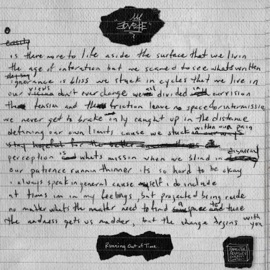 is there more to life aside the surface that we live in
the age of information but we scared to see what's written
ignorance is bliss we stuck in cycles that we live in
our virus don't ever change we all divided with our vision
tension and the friction leave no space for intermissio
we never get to brake only caught up in the distance
defining our own limits cause we stuck with the pain
perception is what's missin when we blind in
our patience runnin thin its so hard to be okay
i always speak in general cause myself i do include
at times im in my feelings but projected being rude
no matter what's the matter need to find a space and tune
the madness gets us madder, but the change begins with you
Running Out of Time